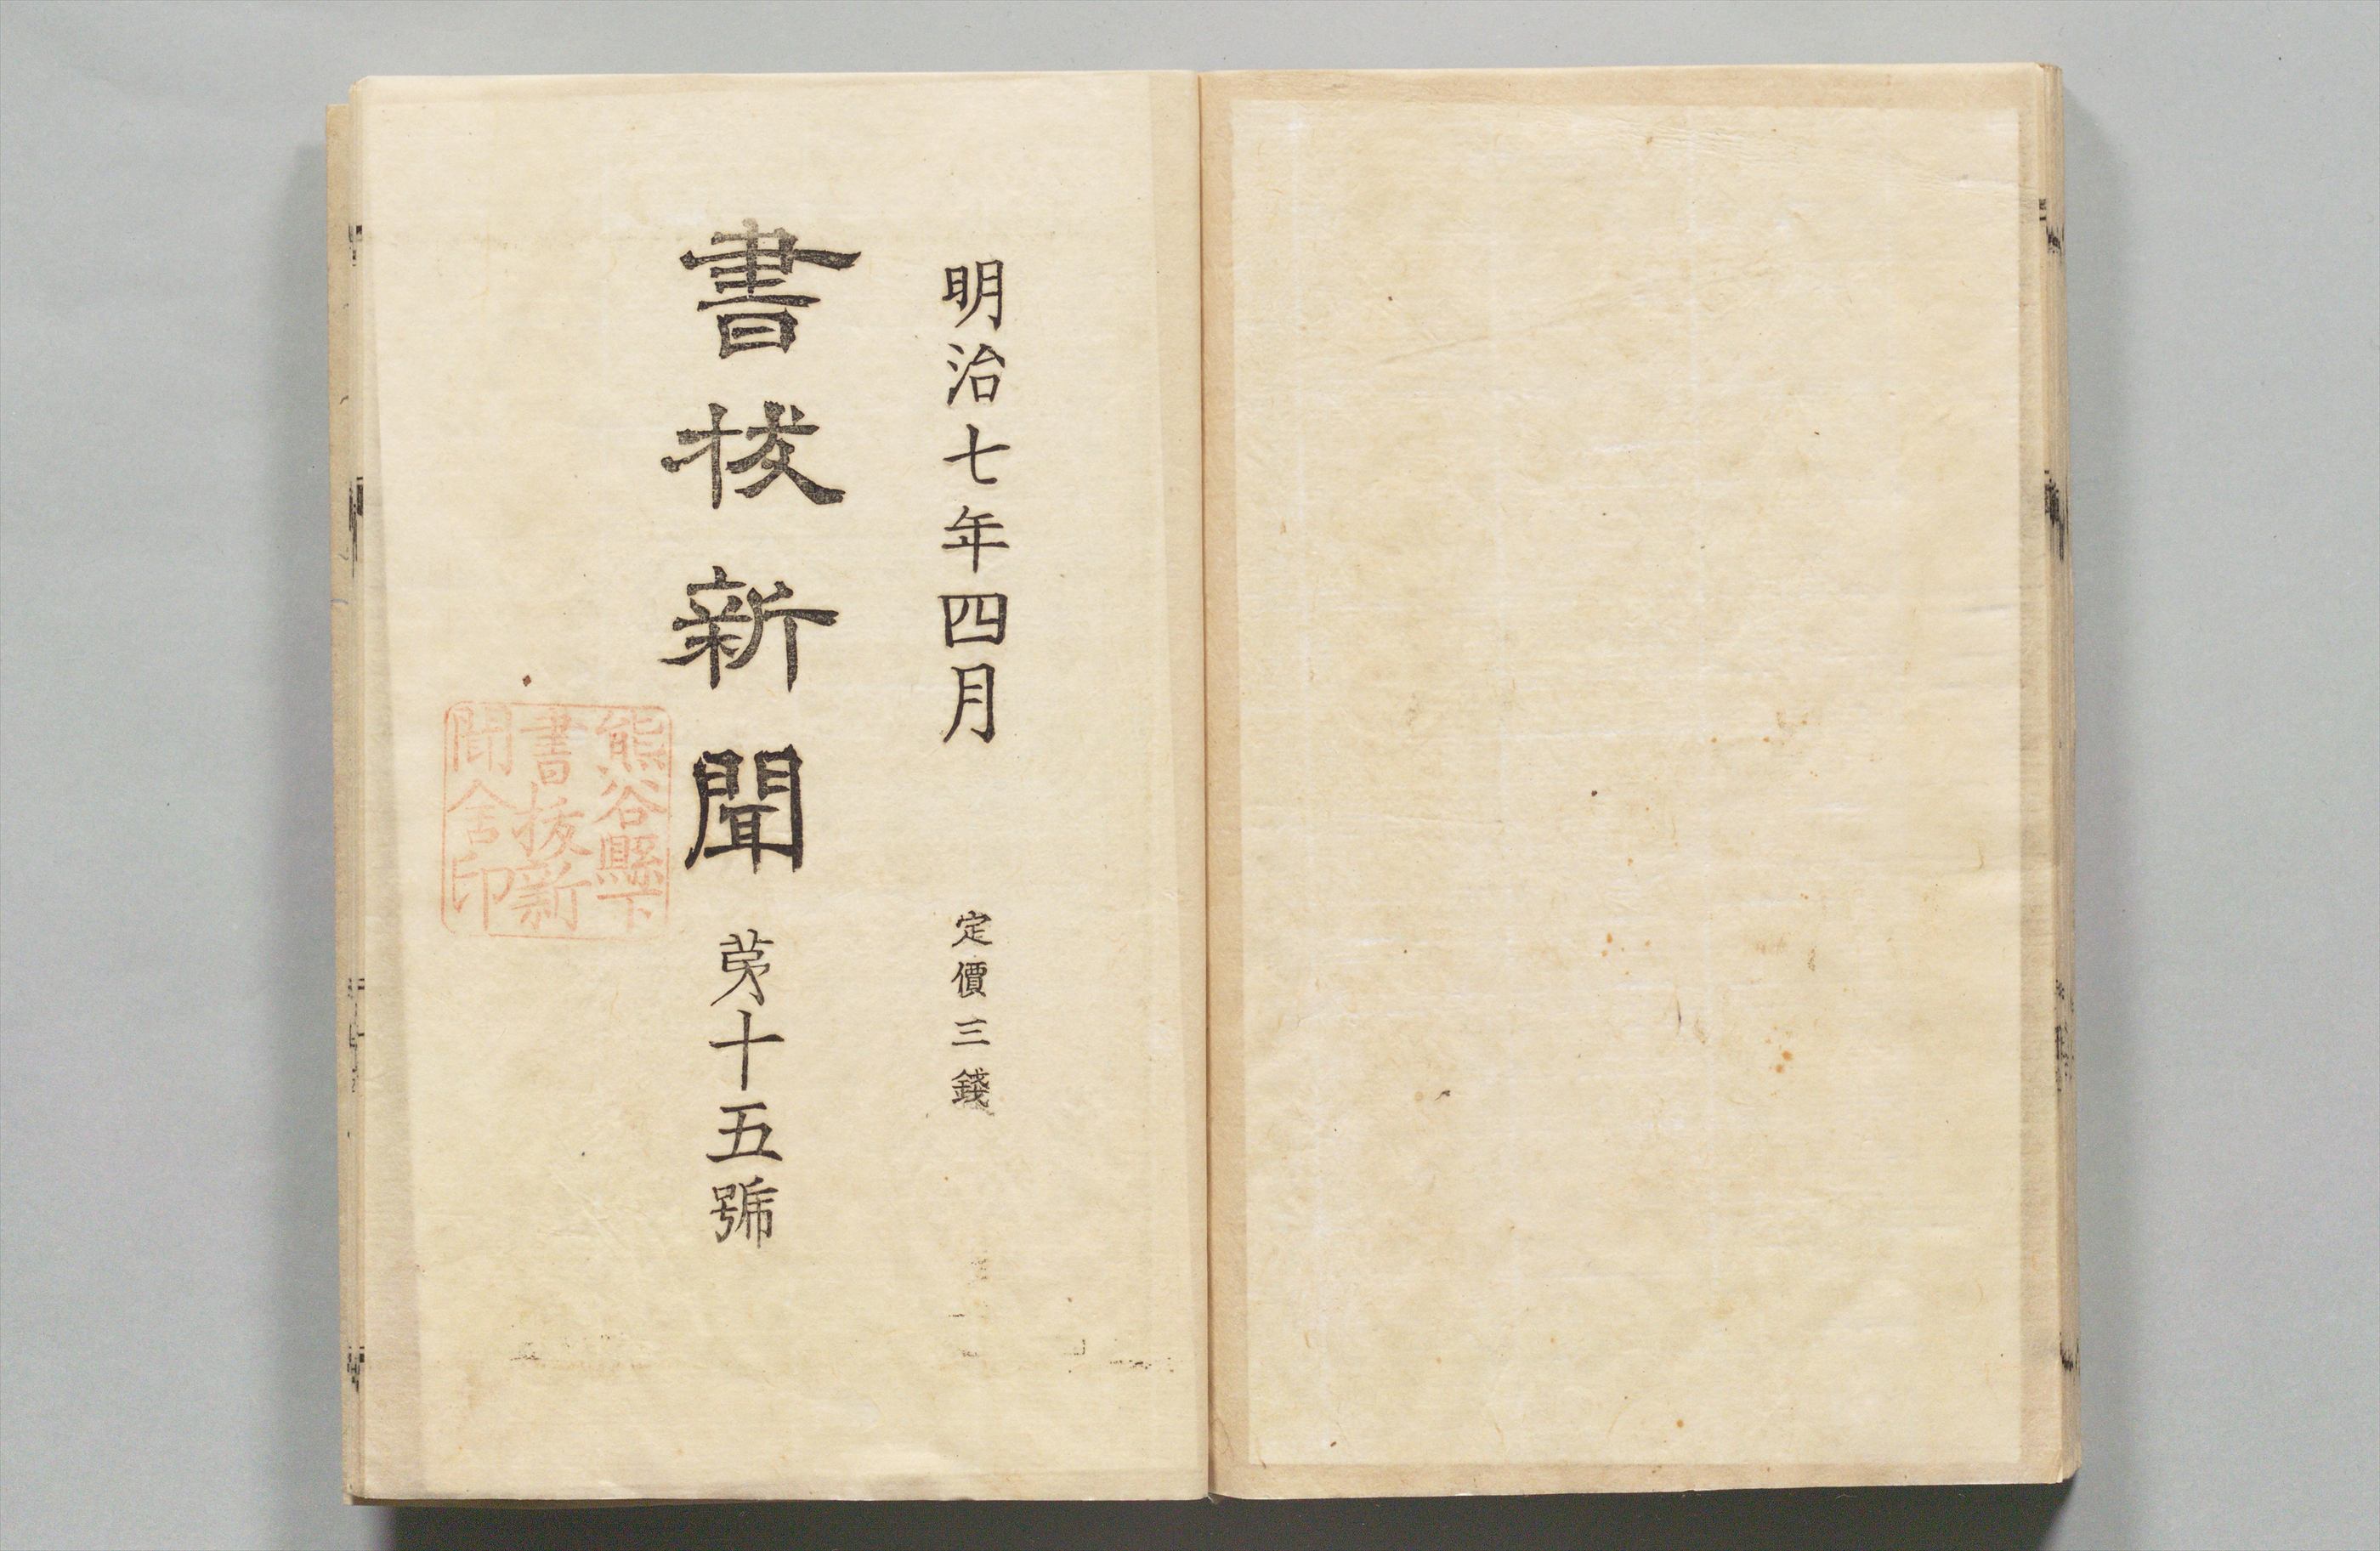 明治七年四月　定價三錢
書抜新聞　苐十五號
熊谷縣下
書抜新
聞舍印